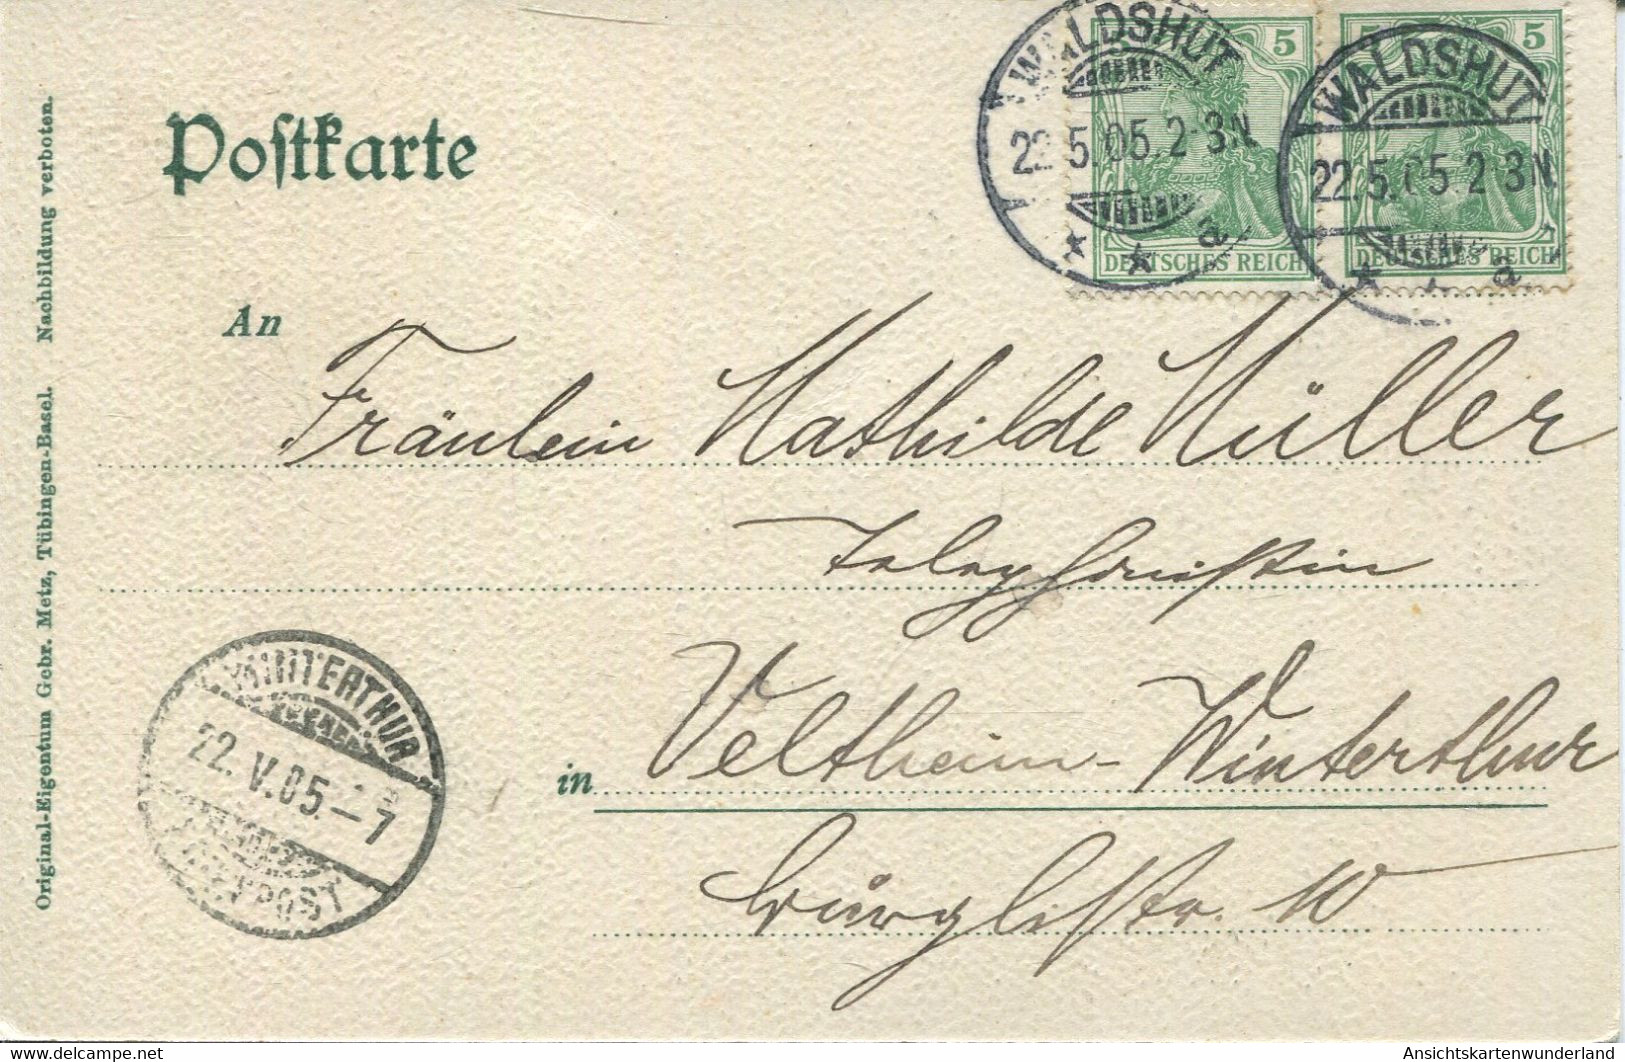 Postkarte
WALDSHUT
22.5.05.2-3N.
a
5
DEUTSCHES REICH
WALDSHUT
22.5.05.2-3N.
a
5
DEUTSCHES REICH
An
Fräulein Mathilde Müller
Telephonistin
in Veltheim-Winterthur
Bürglistr. 10
WINTERTHUR
22.V.05.–7
Original-Eigentum Gebr. Metz, Tübingen-Basel. Nachbildung verboten.
https://www.delcampe.net
AnsichtskartenWunderland